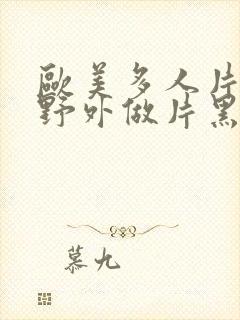 歐美多人片
野外做片黑
慕九